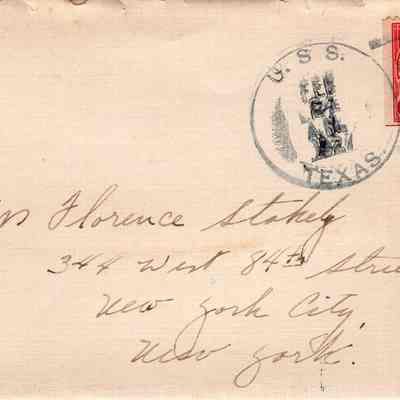 U. S. S.
TEXAS.
Florence Stokely
344 West 84th Stree
New York City,
New York.